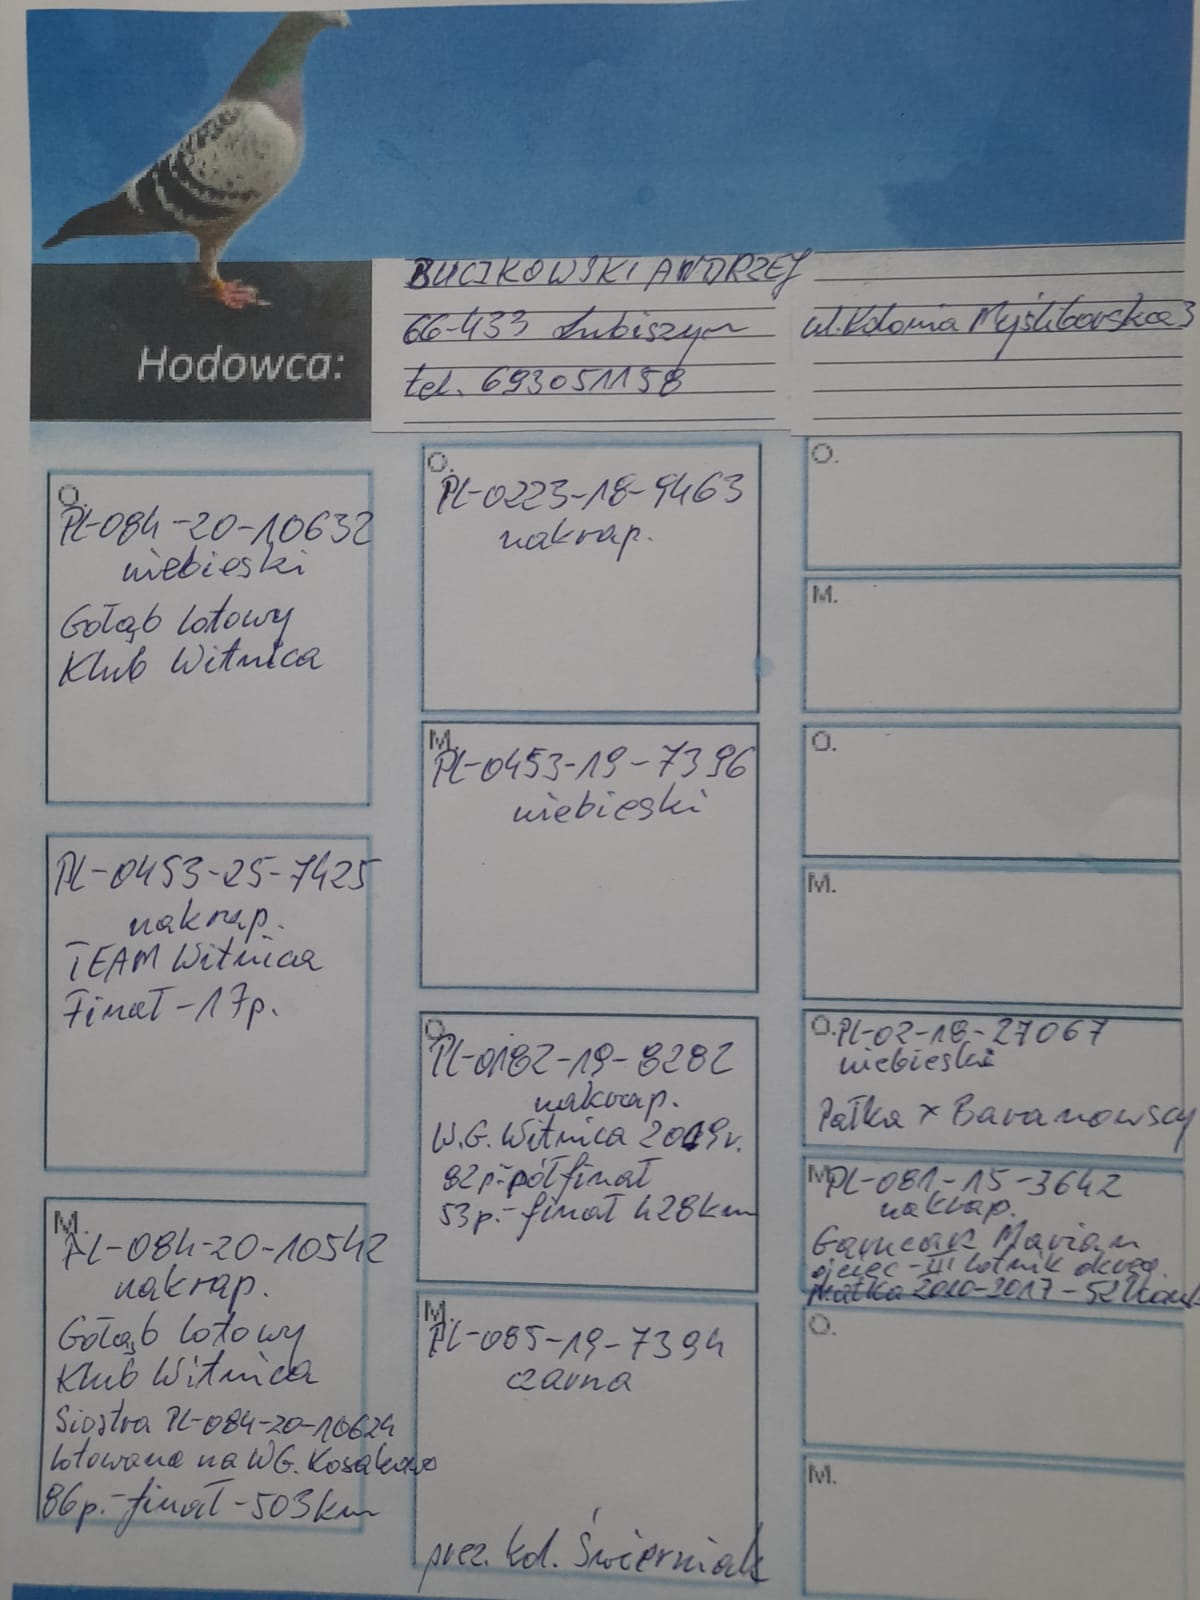 BUCZKOWSKI ANDRZEJ
66-433 Lubiszyn ul. Kolonia Myśliborska 3
Hodowca:
tel. 693051158
O.
PL-084-20-10632
niebieski
Gołąb lotowy
Klub Witnica
PL-0453-25-7425
nakrap.
TEAM Witnica
Finał-17p.
M.
PL-084-20-10542
nakrap.
Gołąb lotowy
Klub Witnica
Siostra PL-084-20-10624
lotowana na WG. Kosakowo
86p.-finał-503km
O.
PL-0223-18-9463
nakrap.
M.
PL-0453-19-7396
niebieski
O.
PL-0182-19-8282
nakrap.
W.G. Witnica 2019r.
82p-półfinał
53p.-finał 428km
M.
PL-085-19-7394
czarna
prez. kol. Świerniak
O.
M.
O.
M.
O. PL-02-18-27067
niebieski
Pałka x Baranowscy
M. PL-081-15-3642
nakrap.
Garncarz Marian
ojciec-III lotnik okręg.
matka 2010-2017-52
O.
M.